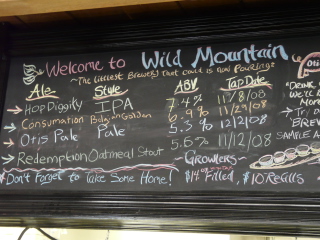 Welcome to Wild Mountain
~The Littlest Brewery That could is now Pouring~
Ale Style ABV Tap Date
→ Hop Diggity IPA 7.4% 11/8/08
→ Consumation Belgian Golden 6.9% 11/29/08
→ Otis Pale Pale 5.3% 12/2/08
→ Redemption Oatmeal Stout 5.6% 11/12/08
~Growlers~
*Don't Forget to Take Some Home! $14 Filled, $10 Refills
Otis
"DRINK
WE'LL
More
→ Tri
BREW
SAMPLE A